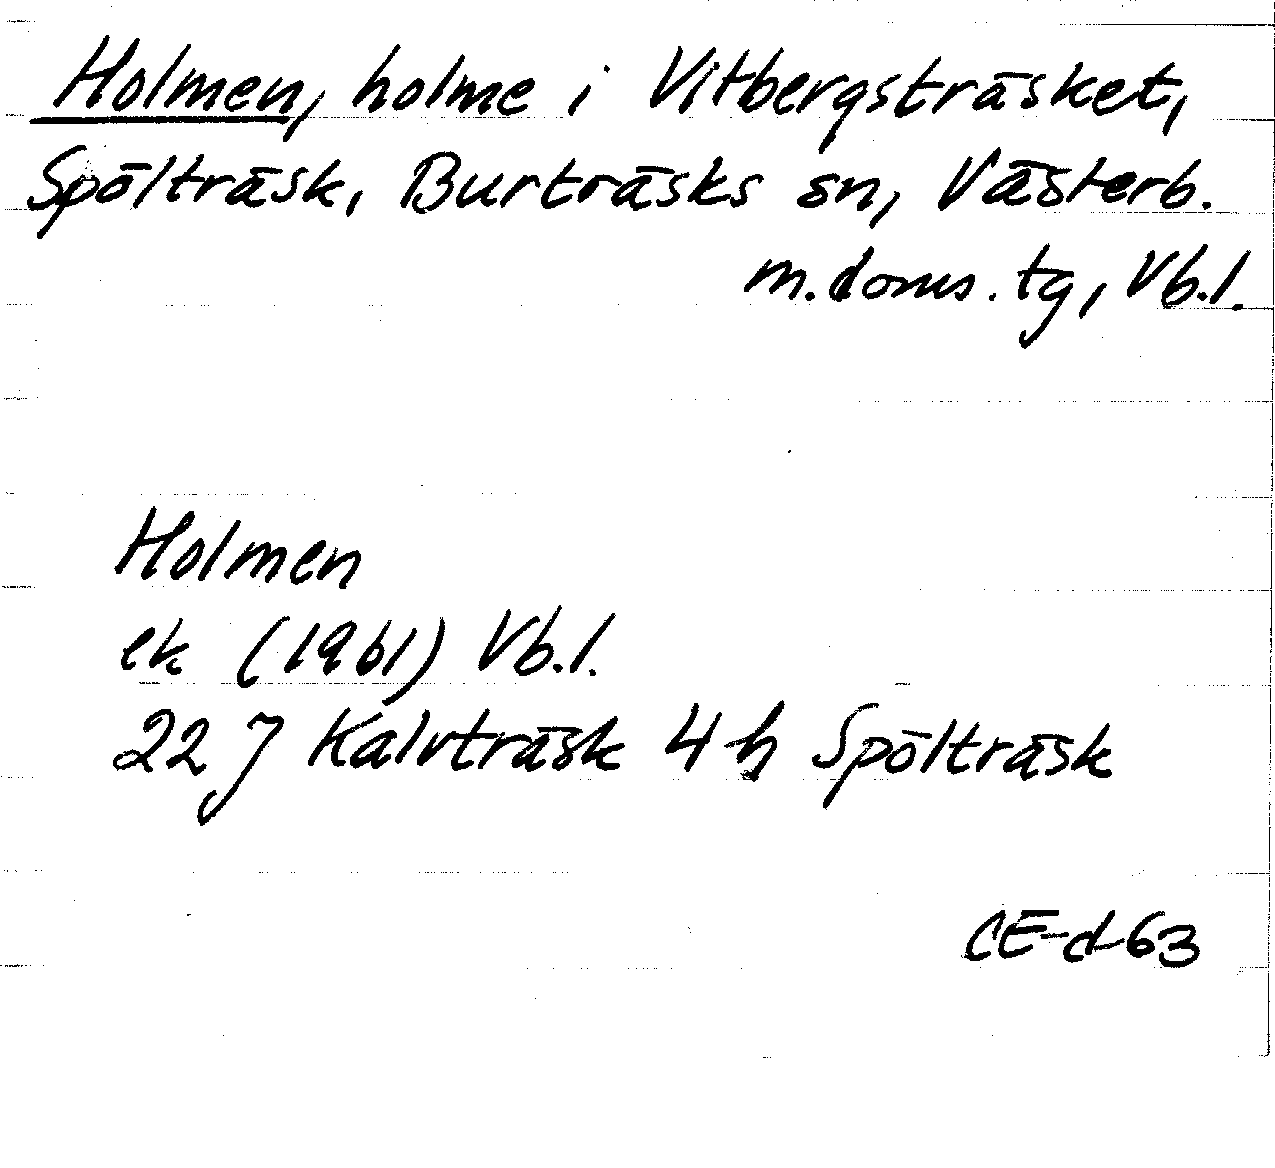 Holmen, holme i Vitbergsträsket,
Spölträsk, Burträsks sn, Västerb.
m. doms. tg, Vb. l.
Holmen
ek (1961) Vb. l.
22 J Kalvträsk 4 h Spölträsk
CE-d-63